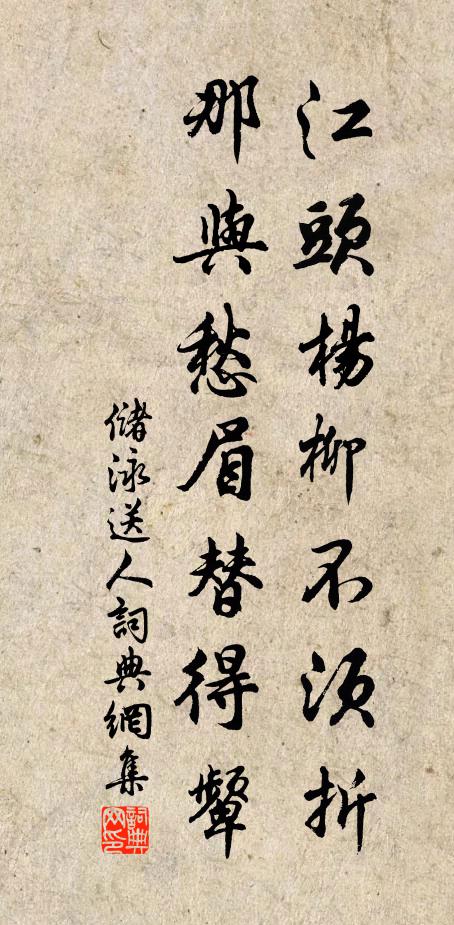 江頭楊柳不須折
那與愁眉替得顰
儲泳送人詞典網集
詞典網印